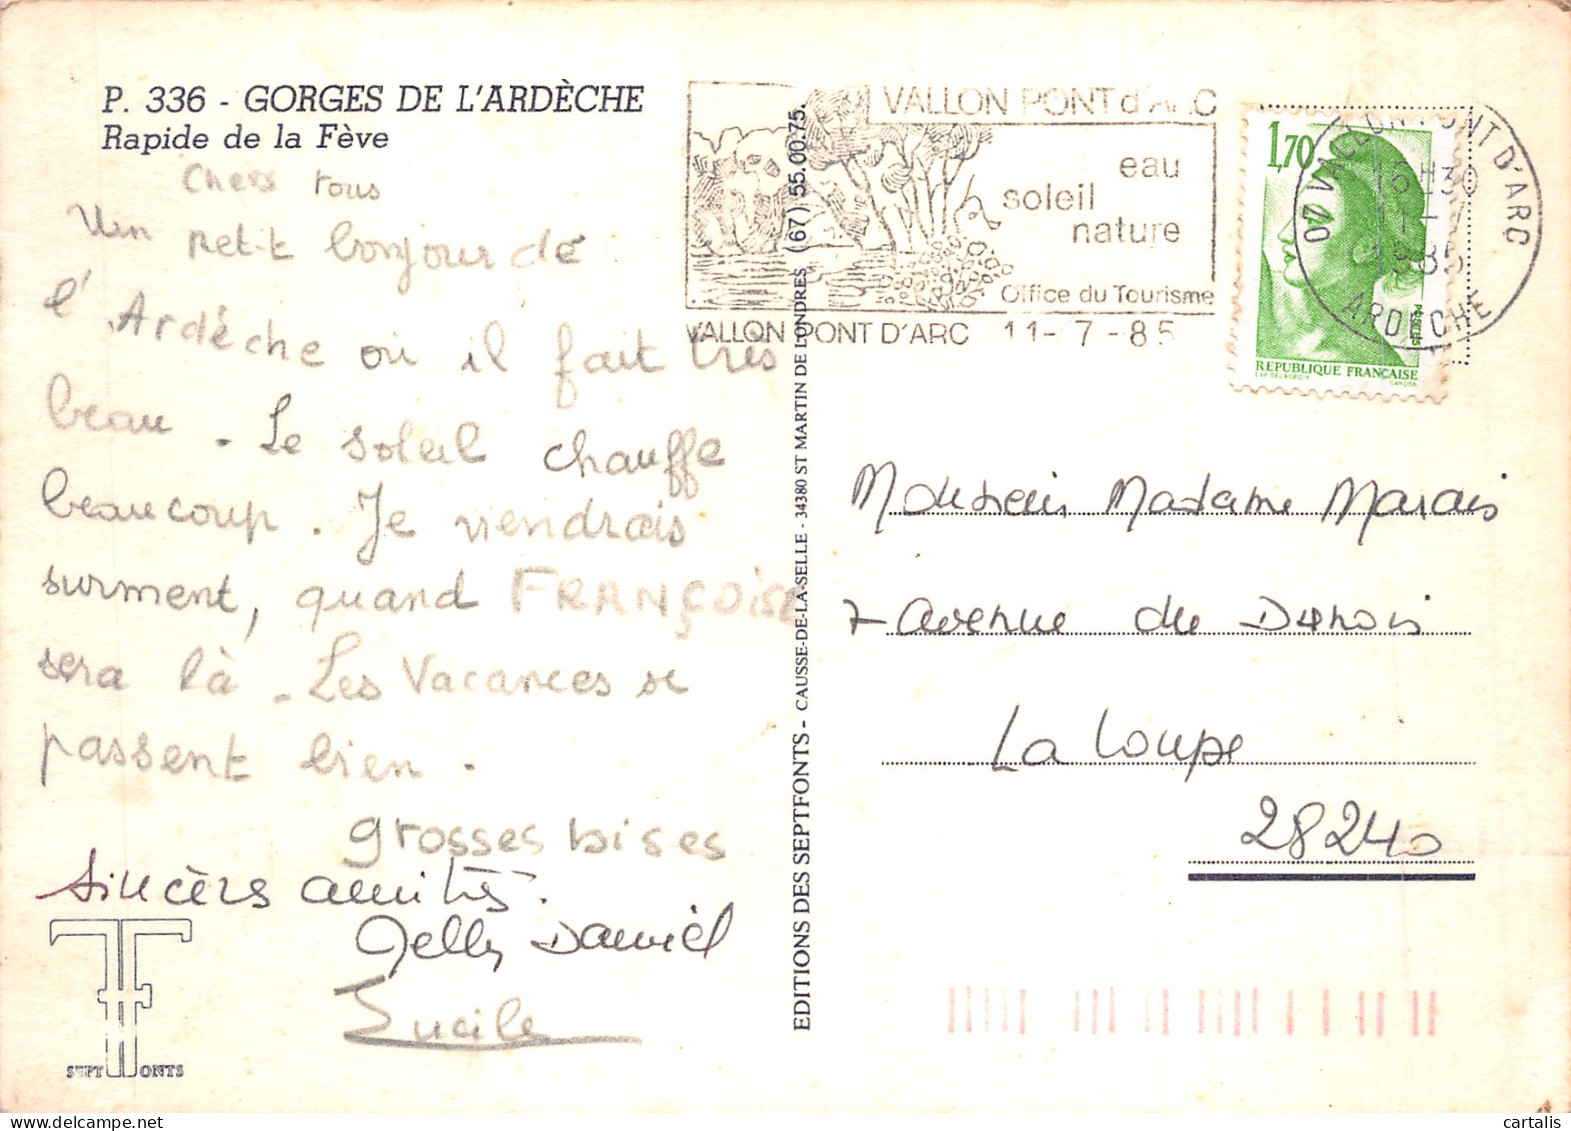 P. 336 - GORGES DE L'ARDÈCHE
Rapide de la Fève
Chers tous
Un petit bonjour de
l'Ardèche où il fait très
beau. Le soleil chauffe
beaucoup. Je viendrais
surment, quand FRANÇOISE
sera là. Les Vacances se
passent bien.
grosses bises
Sincères amitiés.
Daniel
Lucile
SEPT FONTS
EDITIONS DES SEPTFONTS - CAUSSE-DE-LA-SELLE - 34380 ST MARTIN DE LONDRES (67) 55.00.75.
VALLON PONT d'ARC
eau
soleil
nature
Office du Tourisme
VALLON PONT D'ARC 11-7-85
1,70
REPUBLIQUE FRANÇAISE
POSTES
07 VALLON PONT D'ARC
16H30
11-7
1985
ARDECHE
Monsieur Madame Marais
7 avenue du Dunois
La Loupe
28240
cartalis